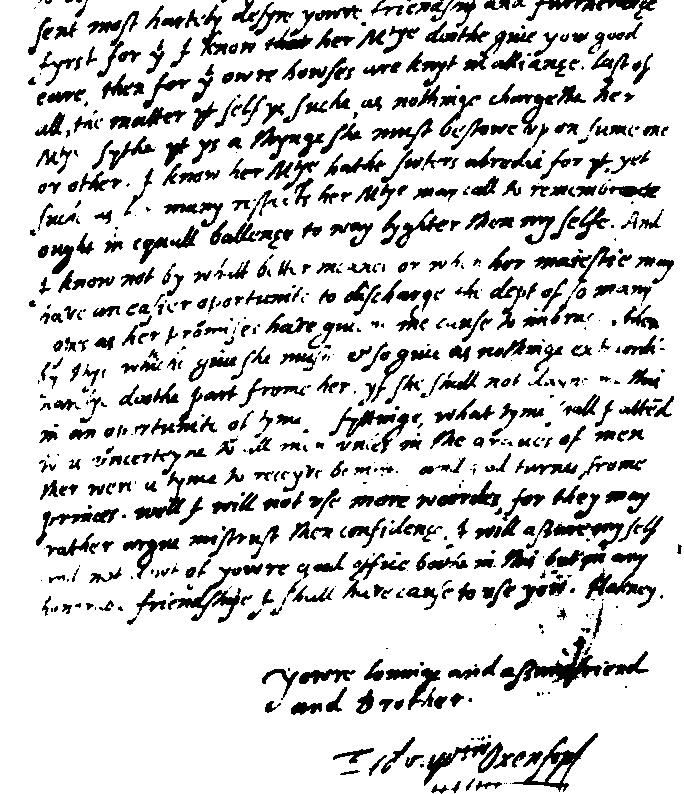 sent most hartely desyre yowre friendship and furtherance
fyrst for yt I know that her Matye dothe giue yow good
eare, then for yt owre howses are knyt in alliance. last of
all, the matter yt self ys suche, as nothinge chargethe her
Matye sythe yt ys a thynge she must bestow vpon sume one
or other. I know her Matye hathe suters abrode for yt, yet
suche as many respects her Matye may call to remembrance
ought in equall ballence to way lyghter then my selfe. And
I know not by what better meanes or when her maiestie may
haue an easier oportunite to discharge the dept of so many
as her promises haue giuen me cause to imbrace, then
by thys whiche giue she must, & so giue as nothinge extraordi-
narye dothe part frome her. yf she shall not
in an oportunite of tyme fyttinge, what tyme shall I attend
vncerteyne to all men vnles in the graues of men
ther were a tyme to receyue and good turnes frome
princes. well I will not vse more woordes, for they may
rather argue mistrust then confidence. I will assure my self
and not dowt of yowre good office bothe in this but in any
honorable friendshipe I shall haue cause to vse yow. Hakney.
Yowre louinge and assured friend
and Brother.
Edward Oxenford